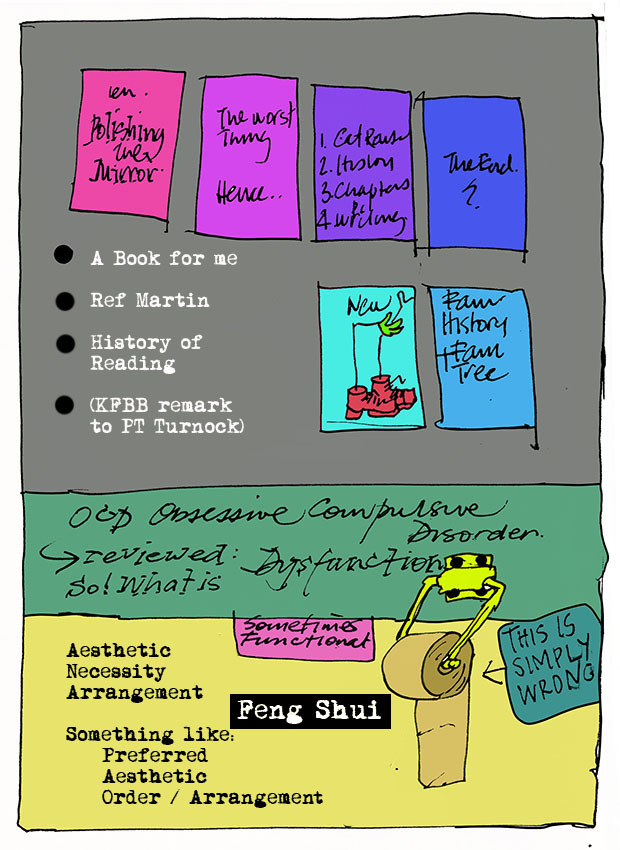 Polishing
the
Mirror.
The worst
Thing
Hence..
1. Cat Raus
2. History
3. Chapters
4. Writing
The End.
?
A Book for me
Ref Martin
History of
Reading
(KFBB remark
to PT Turnock)
New
Fam
History
+ Fam
Tree
OCD Obsessive Compulsive
Disorder.
reviewed: Dysfunction
So! What is
Sometimes
Functional
THIS IS
SIMPLY
WRONG
Aesthetic
Necessity
Arrangement
Feng Shui
Something like:
Preferred
Aesthetic
Order / Arrangement